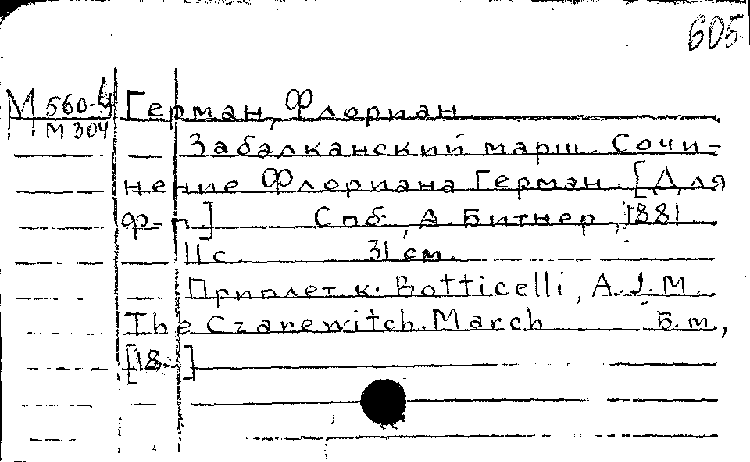 605
М 560-4 Герман, Флориан
М 304
Забалканский марш. Сочи-
нение Флориана Герман. [Для
ф-п.] Спб, А. Битнер, 1881
11 с. 31 см.
Приплет. к: Botticelli, A.J.M.
The Czarewitch March Б.м.,
[18--]